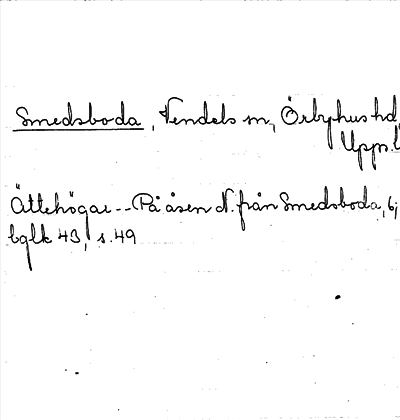 Smedsboda, Vendels sn, Örbyhus hd,
Uppl.
Ättehögar -- På åsen N. från Smedsboda, 6;
bglk 43, s. 49